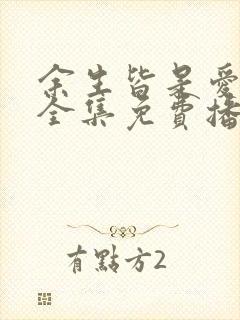 余生皆是愛
全集免費播
有點方2